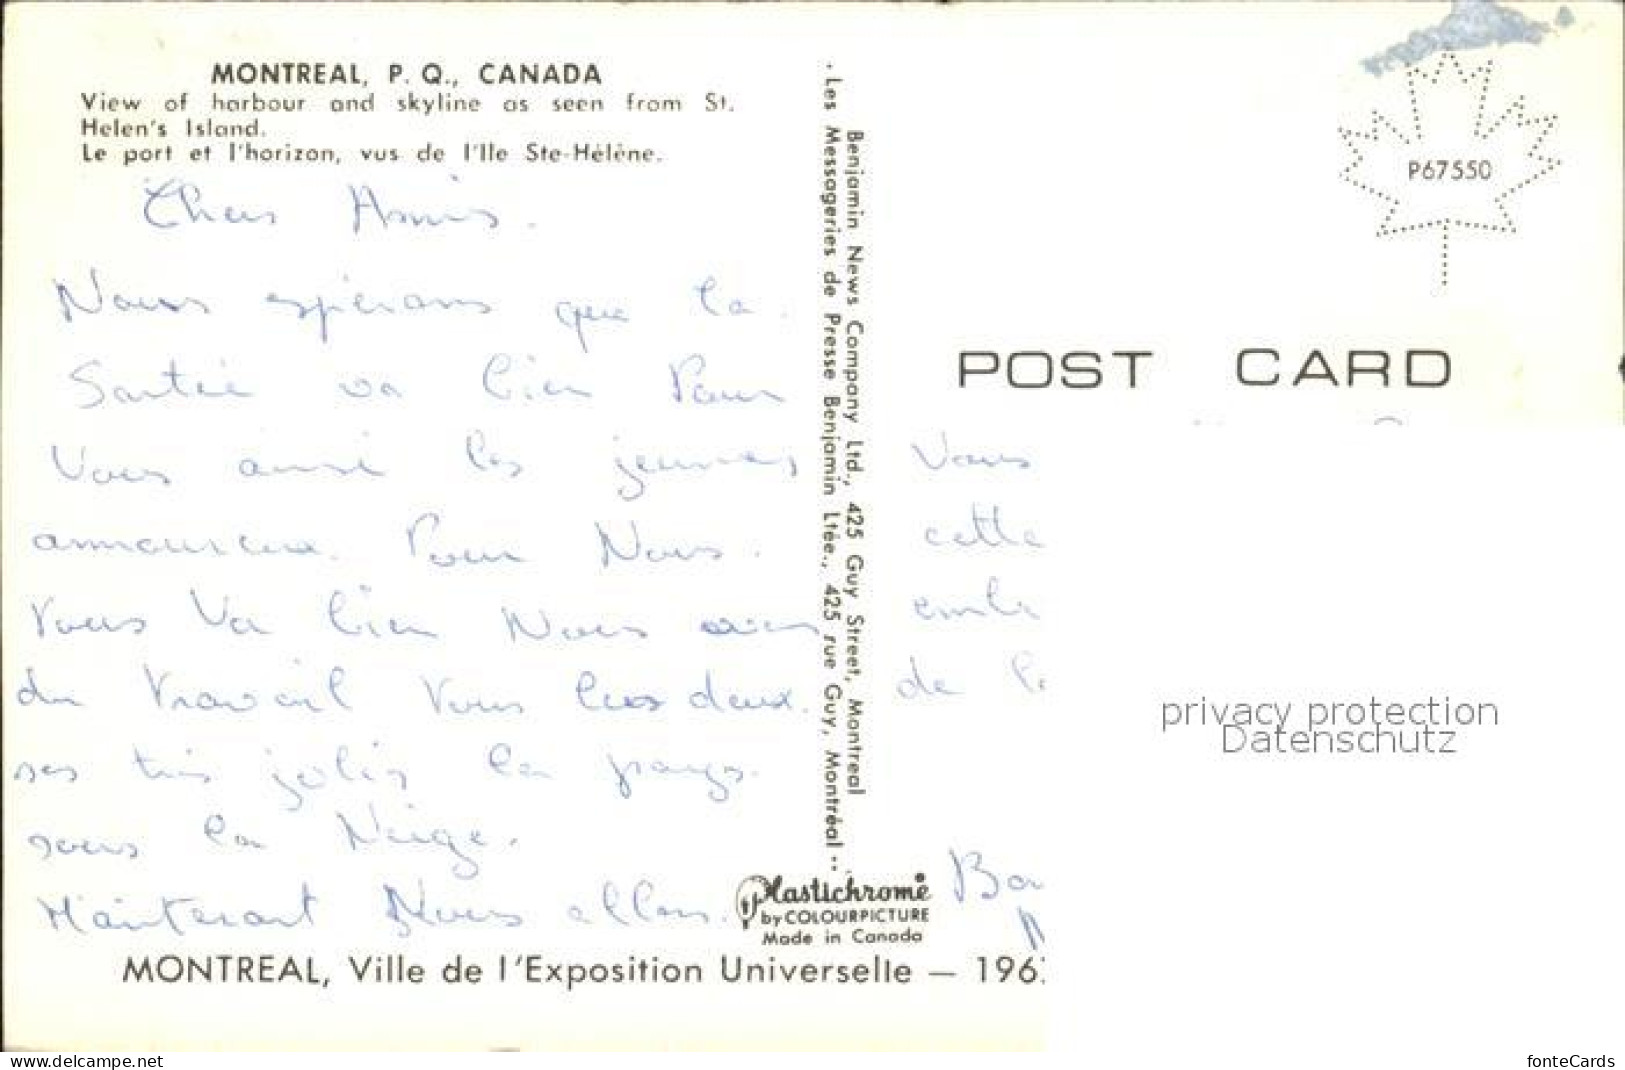 MONTREAL, P. Q., CANADA
View of harbour and skyline as seen from St.
Helen's Island.
Le port et l'horizon, vus de l'Ile Ste-Hélène.
Chers Amis.
Nous espérons que la
Sortie va bien Pour
Vous ainsi les jeunes
amoureux. Pour Nous.
Tous Va bien Nous avons
du travail Tous les deux.
ses tris jolis la pays.
sous la Neige.
Maintenant Nous allons.
Benjamin News Company Ltd., 425 Guy Street, Montreal
· Les Messageries de Presse Benjamin Ltée., 425 rue Guy, Montréal ··
Plastichrome
by COLOURPICTURE
Made in Canada
MONTREAL, Ville de l'Exposition Universelle — 196
P67550
POST CARD
Vous
cette
de
privacy protection
Datenschutz
www.delcampe.net
fonteCards